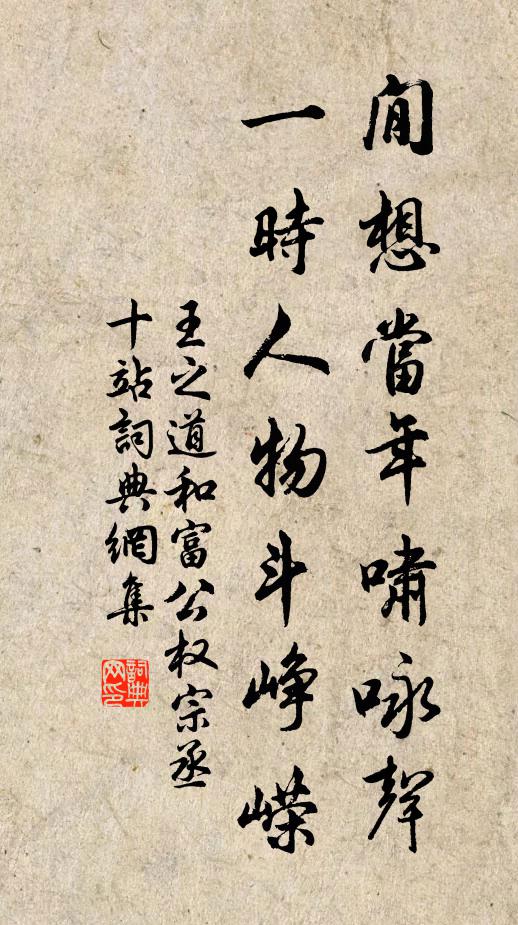 閒想當年嘯咏聲
一時人物斗峥嶸
王之道和富公权宗丞
十站詞典網集
詞典网印